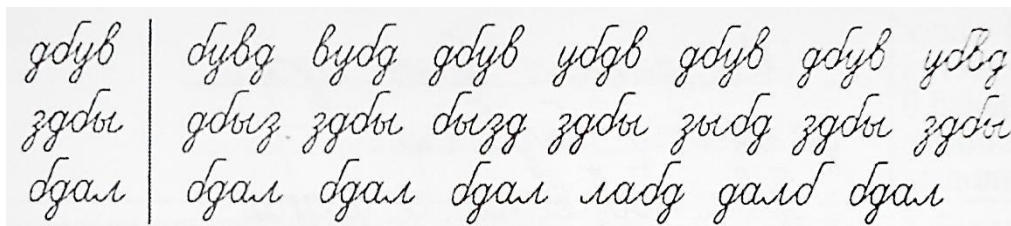 дбув бувд вубд дбув убдв дбув дбув убвд
здбы дбыз здбы бызд здбы зыбд здбы здбы
бдал бдал бдал бдал лабд далб бдал